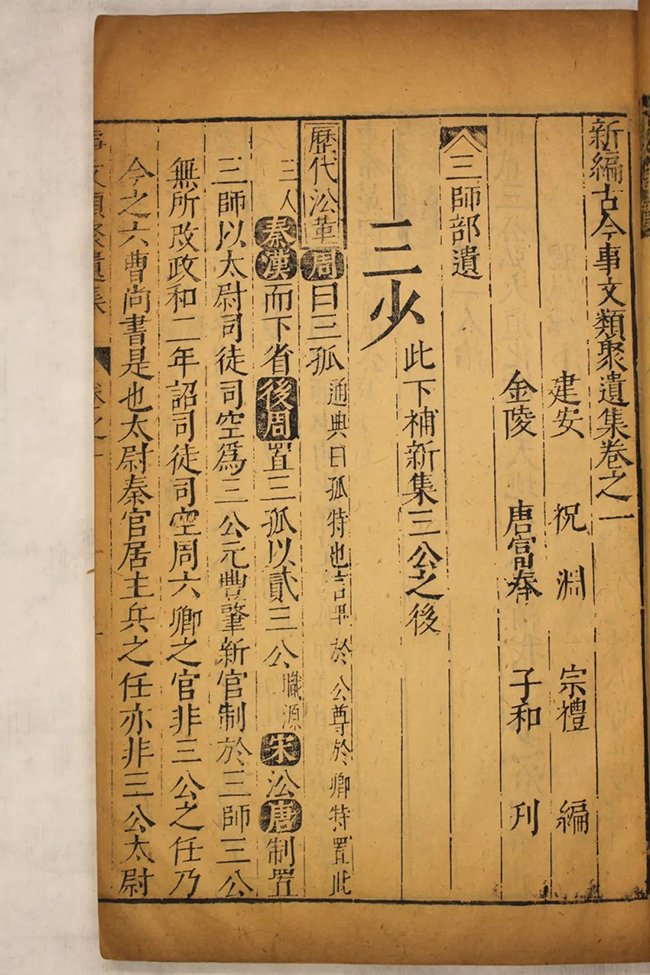 新編古今事文類聚遺集卷之一
建安 祝淵 宗禮 編
金陵 唐富春 子和 刋
三師部遺
三少 此下補新集三公之後
歷代㳂革 周曰三孤 通典曰孤特也言卑於公尊於卿特置此
三人 秦漢而下省後周置三孤以貳三公 職源 宋㳂唐制置
三師以太尉司徒司空爲三公元豐肇新官制於三師三公
無所改政和二年詔司徒司空周六卿之官非三公之任乃
今之六曹尚書是也太尉秦官居主兵之任亦非三公太尉
事文類聚遺集 卷之一